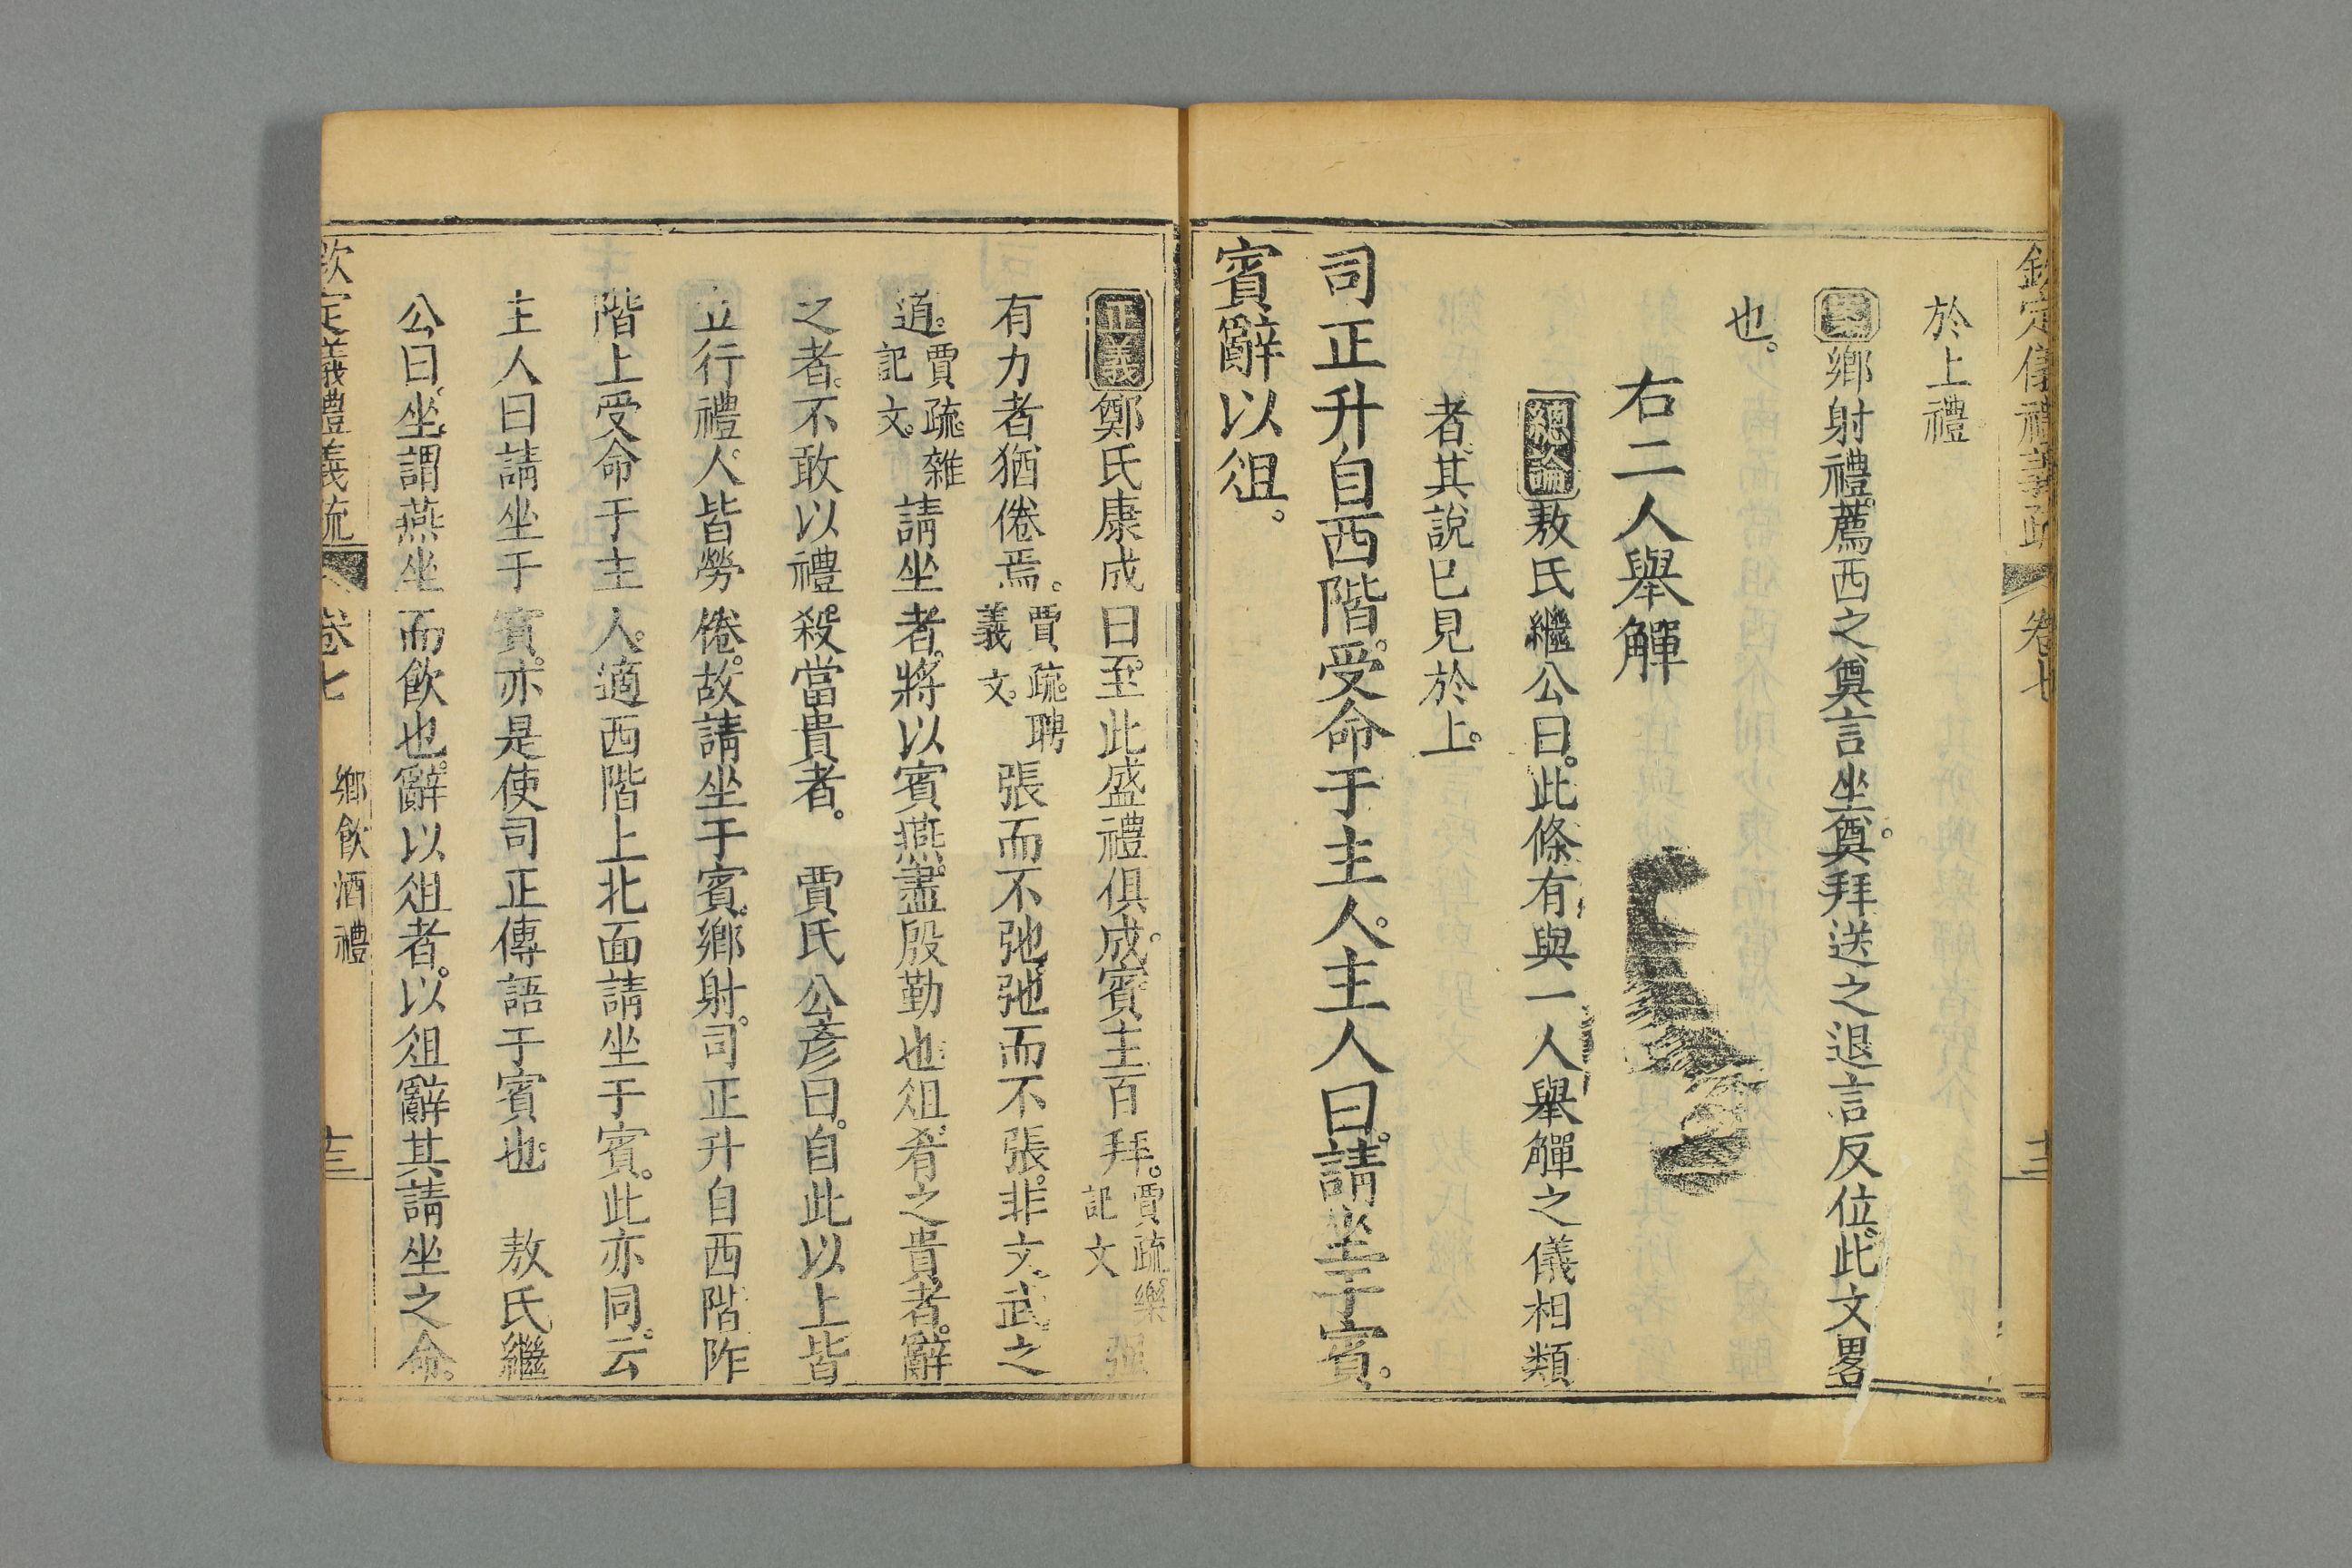 欽定儀禮義疏 卷七 十三
於上禮
案鄉射禮薦西之奠言坐奠拜送之退言反位此文畧
也
右二人舉觶
總論敖氏繼公曰此條有與一人舉觶之儀相類
者其說已見於上
司正升自西階受命于主人主人曰請坐于賓
賓辭以俎
正義鄭氏康成曰至此盛禮俱成賓主百拜賈疏樂記文強
有力者猶倦焉賈疏聘義文張而不弛弛而不張非文武之
道賈疏雜記文請坐者將以賓燕盡殷勤也俎肴之貴者辭
之者不敢以禮殺當貴者 賈氏公彥曰自此以上皆
立行禮人皆勞倦故請坐于賓鄉射司正升自西階阼
階上受命于主人適西階上北面請坐于賓此亦同云
主人曰請坐于賓亦是使司正傳語于賓也 敖氏繼
公曰坐謂燕坐而飲也辭以俎者以俎辭其請坐之命
欽定儀禮義疏 卷七 鄉飲酒禮 十三